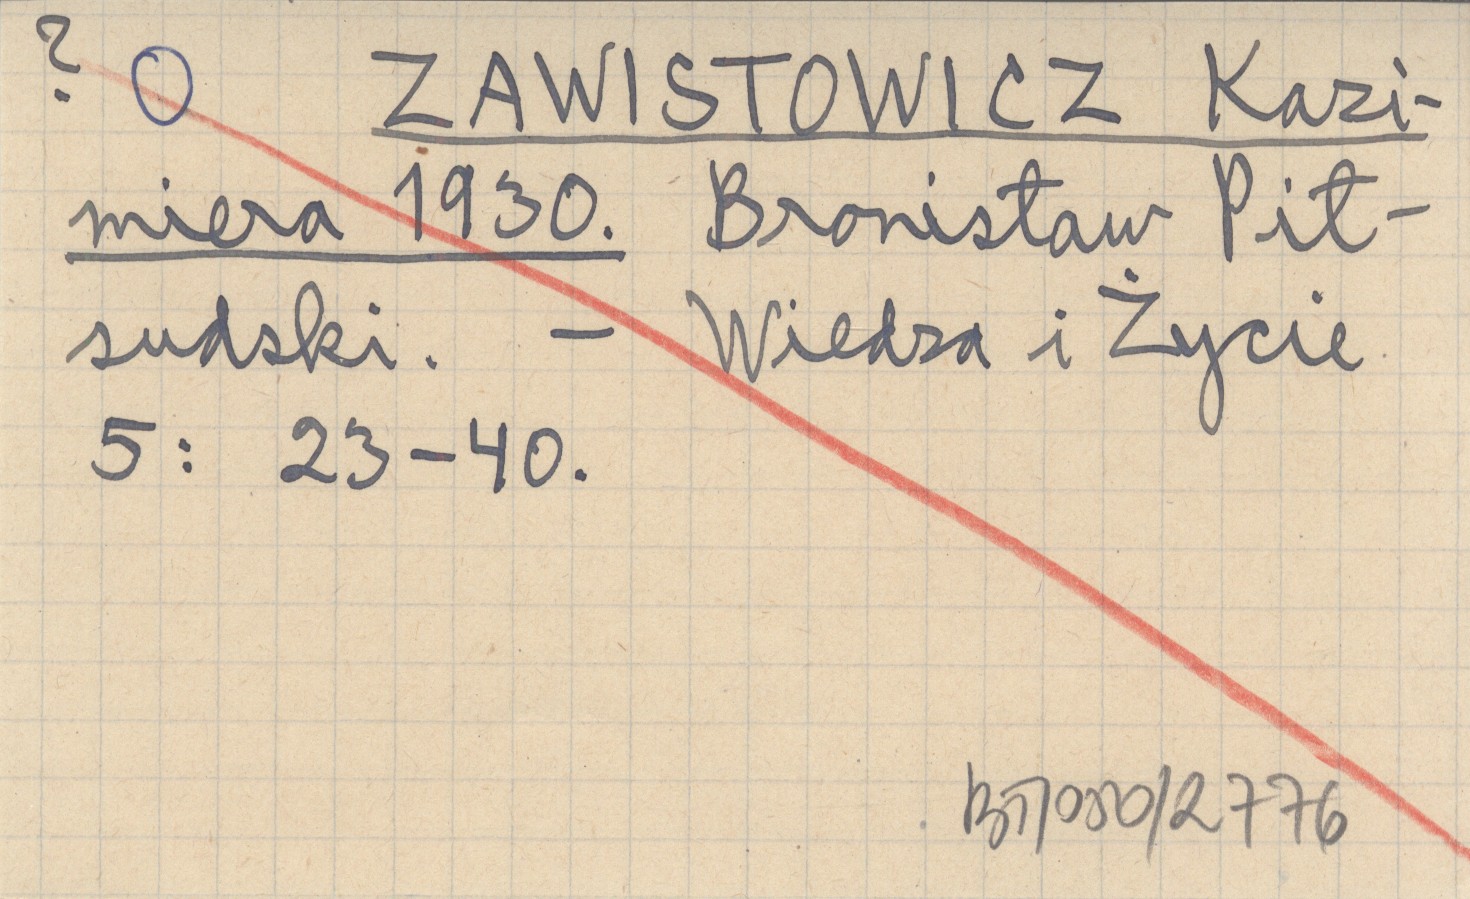 ? O ZAWISTOWICZ Kazi-
miera 1930. Bronisław Pił-
sudski. - Wiedza i Życie
5: 23-40.